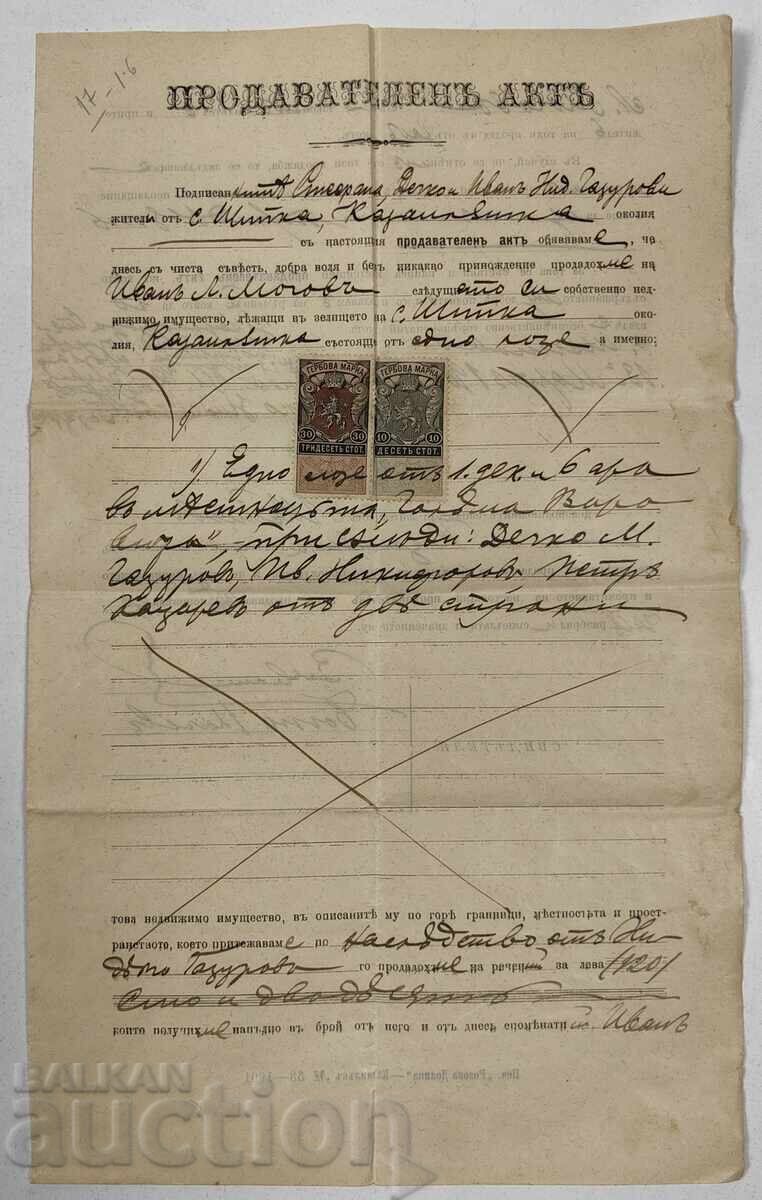 17-1.6
ПРОДАВАТЕЛЕНЪ АКТЪ
Подписанитѣ Стефрана, Дечко и Иванъ Нид. Газурови
жители отъ с. Шипка, Казанлъшка околия
съ настоящия продавателенъ актъ обявяваме, че
днесъ съ чиста съвѣсть, добра воля и безъ никакво принождение продадохме на
Иванъ А. Моговъ слѣдующето си собственно нед-
вижимо имущество, лѣжащи въ землището на с. Шипка око-
лия, Казанлъшка състояще отъ едно лозе а именно:
ГЕРБОВА МАРКА ГЕРБОВА МАРКА
30 30 10 10
ТРИДЕСЕТЬ СТОТ. ДЕСЕТЬ СТОТ.
1/ Едно лозе отъ 1. дек. и 6 ара
въ мѣстностьта "Голѣма Варо
" при съсѣди: Дечко М.
Газуровъ, Ив. Никифоровъ Петръ
отъ двѣ страни
СВИДѢТЕЛИ
това недвижимо имущество, въ описанитѣ му по горѣ граници, мѣстностьта и прост-
ранството, което притежаваме по наследство отъ Ни-
дѣлю Газуровъ го продадохме на речений за лева /120/
Сто и двадесеть
които получихме напълно въ брой отъ него и отъ днесь споменатий Иванъ
Печ. "Розова Долина" — Казанлъкъ № 38—1901
BALKAN
auction